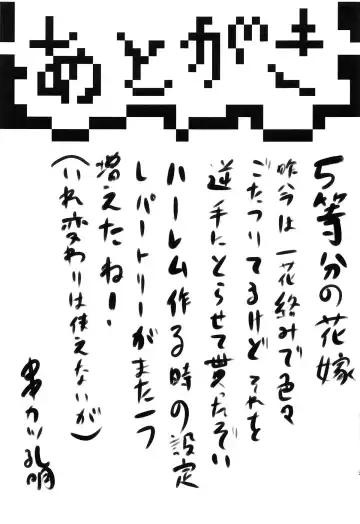 あとがき
5等分の花嫁
昨今は一花絡みで色々
ごたついてるけどそれを
逆手にとらせて貰ったぞい
ハーレム作る時の設定
レパートリーがまた一つ
増えたね！
（いれ変わりは使えないが）
串カツ孔明